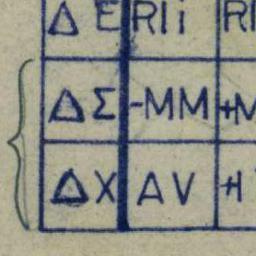 Δ E RIi RI
ΔΣ -MM +M
ΔX AV +I